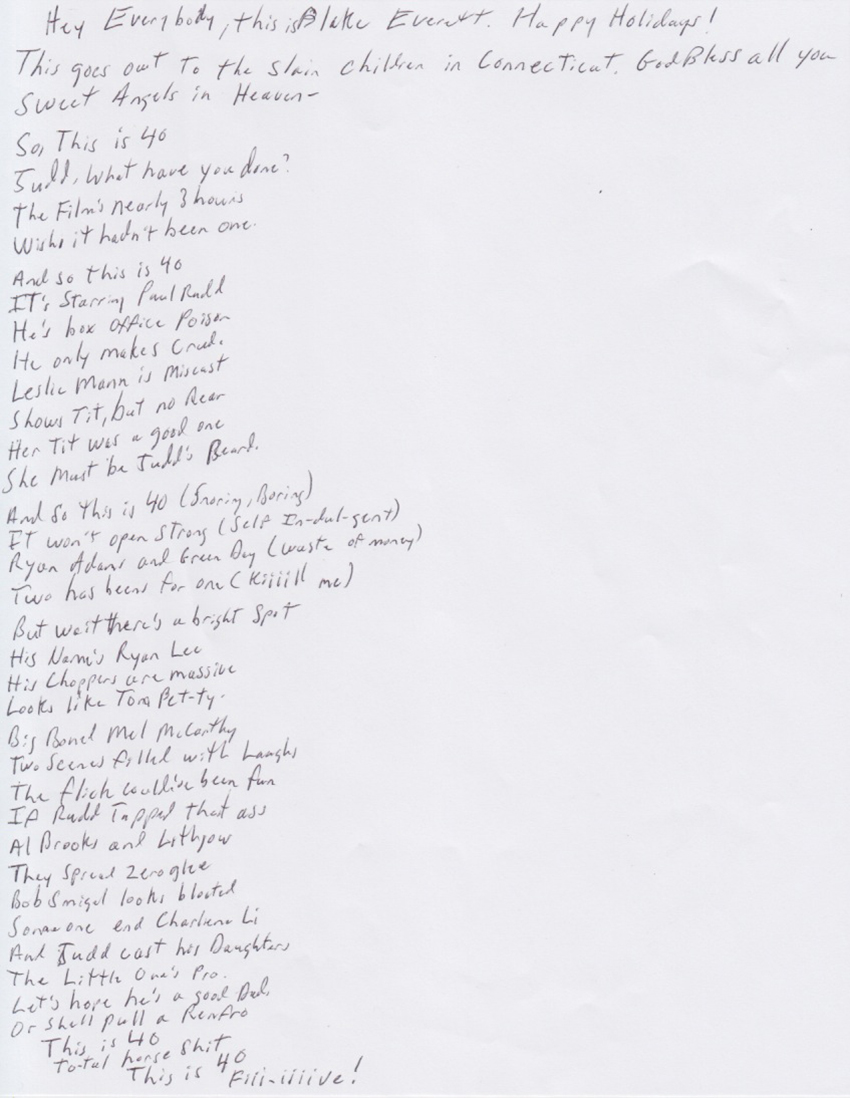 Hey Everybody, this is Blake Everett. Happy Holidays!
This goes out to the slain children in Connecticut. God Bless all you
Sweet Angels in Heaven-
So, This is 40
Judd, What have you done?
The Film's nearly 3 hours
Wish it hadn't been one.
And so this is 40
IT's Starring Paul Rudd
He's box office Poison
He only makes Crud.
Leslie Mann is Miscast
Shows Tit, but no Rear
Her Tit was a good one
She Must be Judd's Beard.
And So This is 40 (Snoring, Boring)
IT won't open Strong (Self In-dul-gent)
Ryan Adams and Green Day (waste of money)
Two has beens for one (Kiiiill me)
But wait there's a bright Spot
His Name's Ryan Lee
His Choppers are massive
Looks like Tom Pet-ty.
Big Boned Mel McCarthy
Two Scenes filled with Laughs
The flick could've been fun
If Rudd Tapped that ass
Al Brooks and Lithgow
They Spread zero glee
Bob Smigel looks bloated
Someone end Charlene Li
And Judd cast his Daughters
The Little One's Pro.
Let's hope he's a good Dad,
Or Shell pull a Renfro
This is 40
to-tal horse shit
This is 40
Fiii-iiiive!